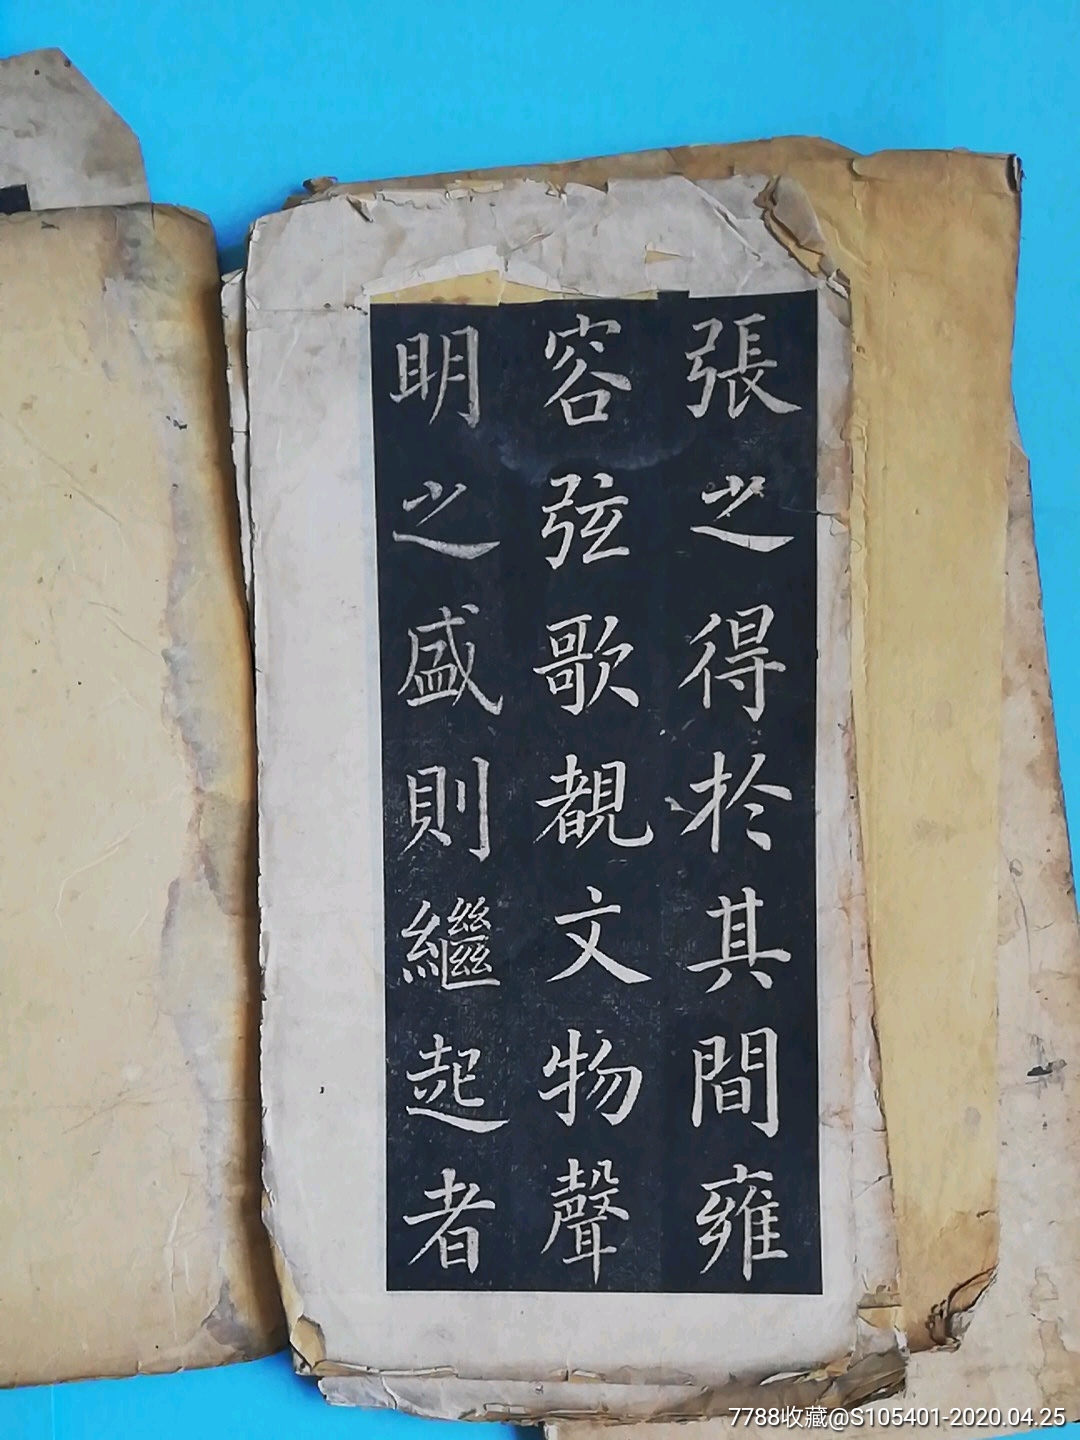 張之得於其間雍
容弦歌覩文物聲
明之盛則繼起者
7788收藏@S105401-2020.04.25